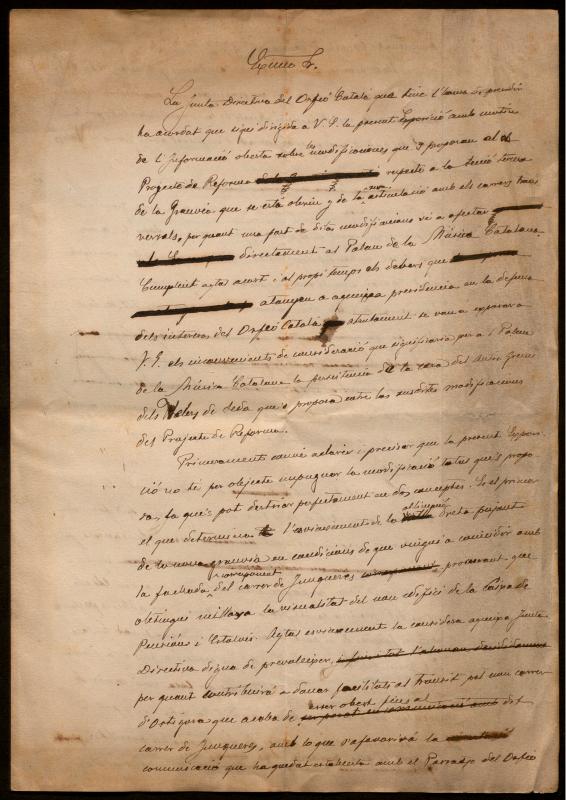 Exmo Sr.
La Junta Directiva del Orfeó Català que tinc l'honor de presidir
ha acordat que sigui dirigida a V. E. la present Exposició amb motiu
de l'Informació oberta sobre les modificacions que's proposan al
Projecte de Reforma respecte a la secció tercera
de la Granvia que se està obrint y de la seva articulació amb els carrers trans-
versals, per quant una part de ditas modificacions ve a afectar
directament al Palau de la Música Catalana.
Cumplint aytal acort i al propi temps als debers que
atanyen a aqueixa presidencia en la defensa
dels interesos del Orfeó Català atentament se va a exposar a
V. E. els inconvenients de consideració que significaria per a l'Palau
de la Música Catalana la persistencia de la casa del antic Gremi
dels Velers de Seda que's proposa entre las susditas modificacions
del Projecte de Reforma.
Primerament convé aclarir i precisar que la present Exposi-
ció no té per objecte impugnar la modificació total que's propo-
sa, la que's pot destriar perfectament en dos conceptes. Es el primer
el que determina l'eixamplement de la alineació dreta
de la nova granvia en condicions de que vingui a coincidir amb
la fachada corresponent del carrer de Junqueres, procurant que
obtingui millora la visualitat del nou edifici de la Caixa de
Pensions i Estalvis. Aytal la considera aqueixa Junta
Directiva digna de prevaleixer,
per quant contribuirá a donar facilitats al transit pel nou carrer
d'Ortigosa que acaba de esser obert fins a dit
carrer de Junqueres, amb lo que s'afavorirá la
comunicació que ha quedat establerta amb el Passatje del Orfeó